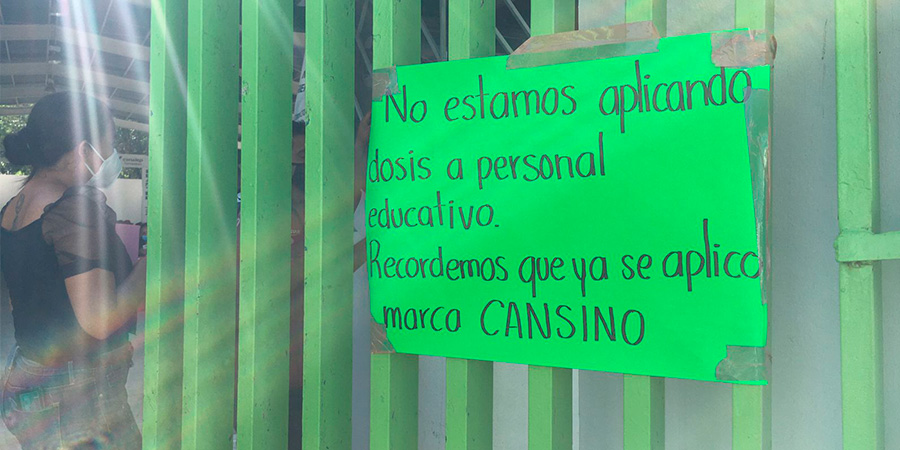 No estamos aplicando
dosis a personal
educativo.
Recordemos que ya se aplico
marca CANSINO